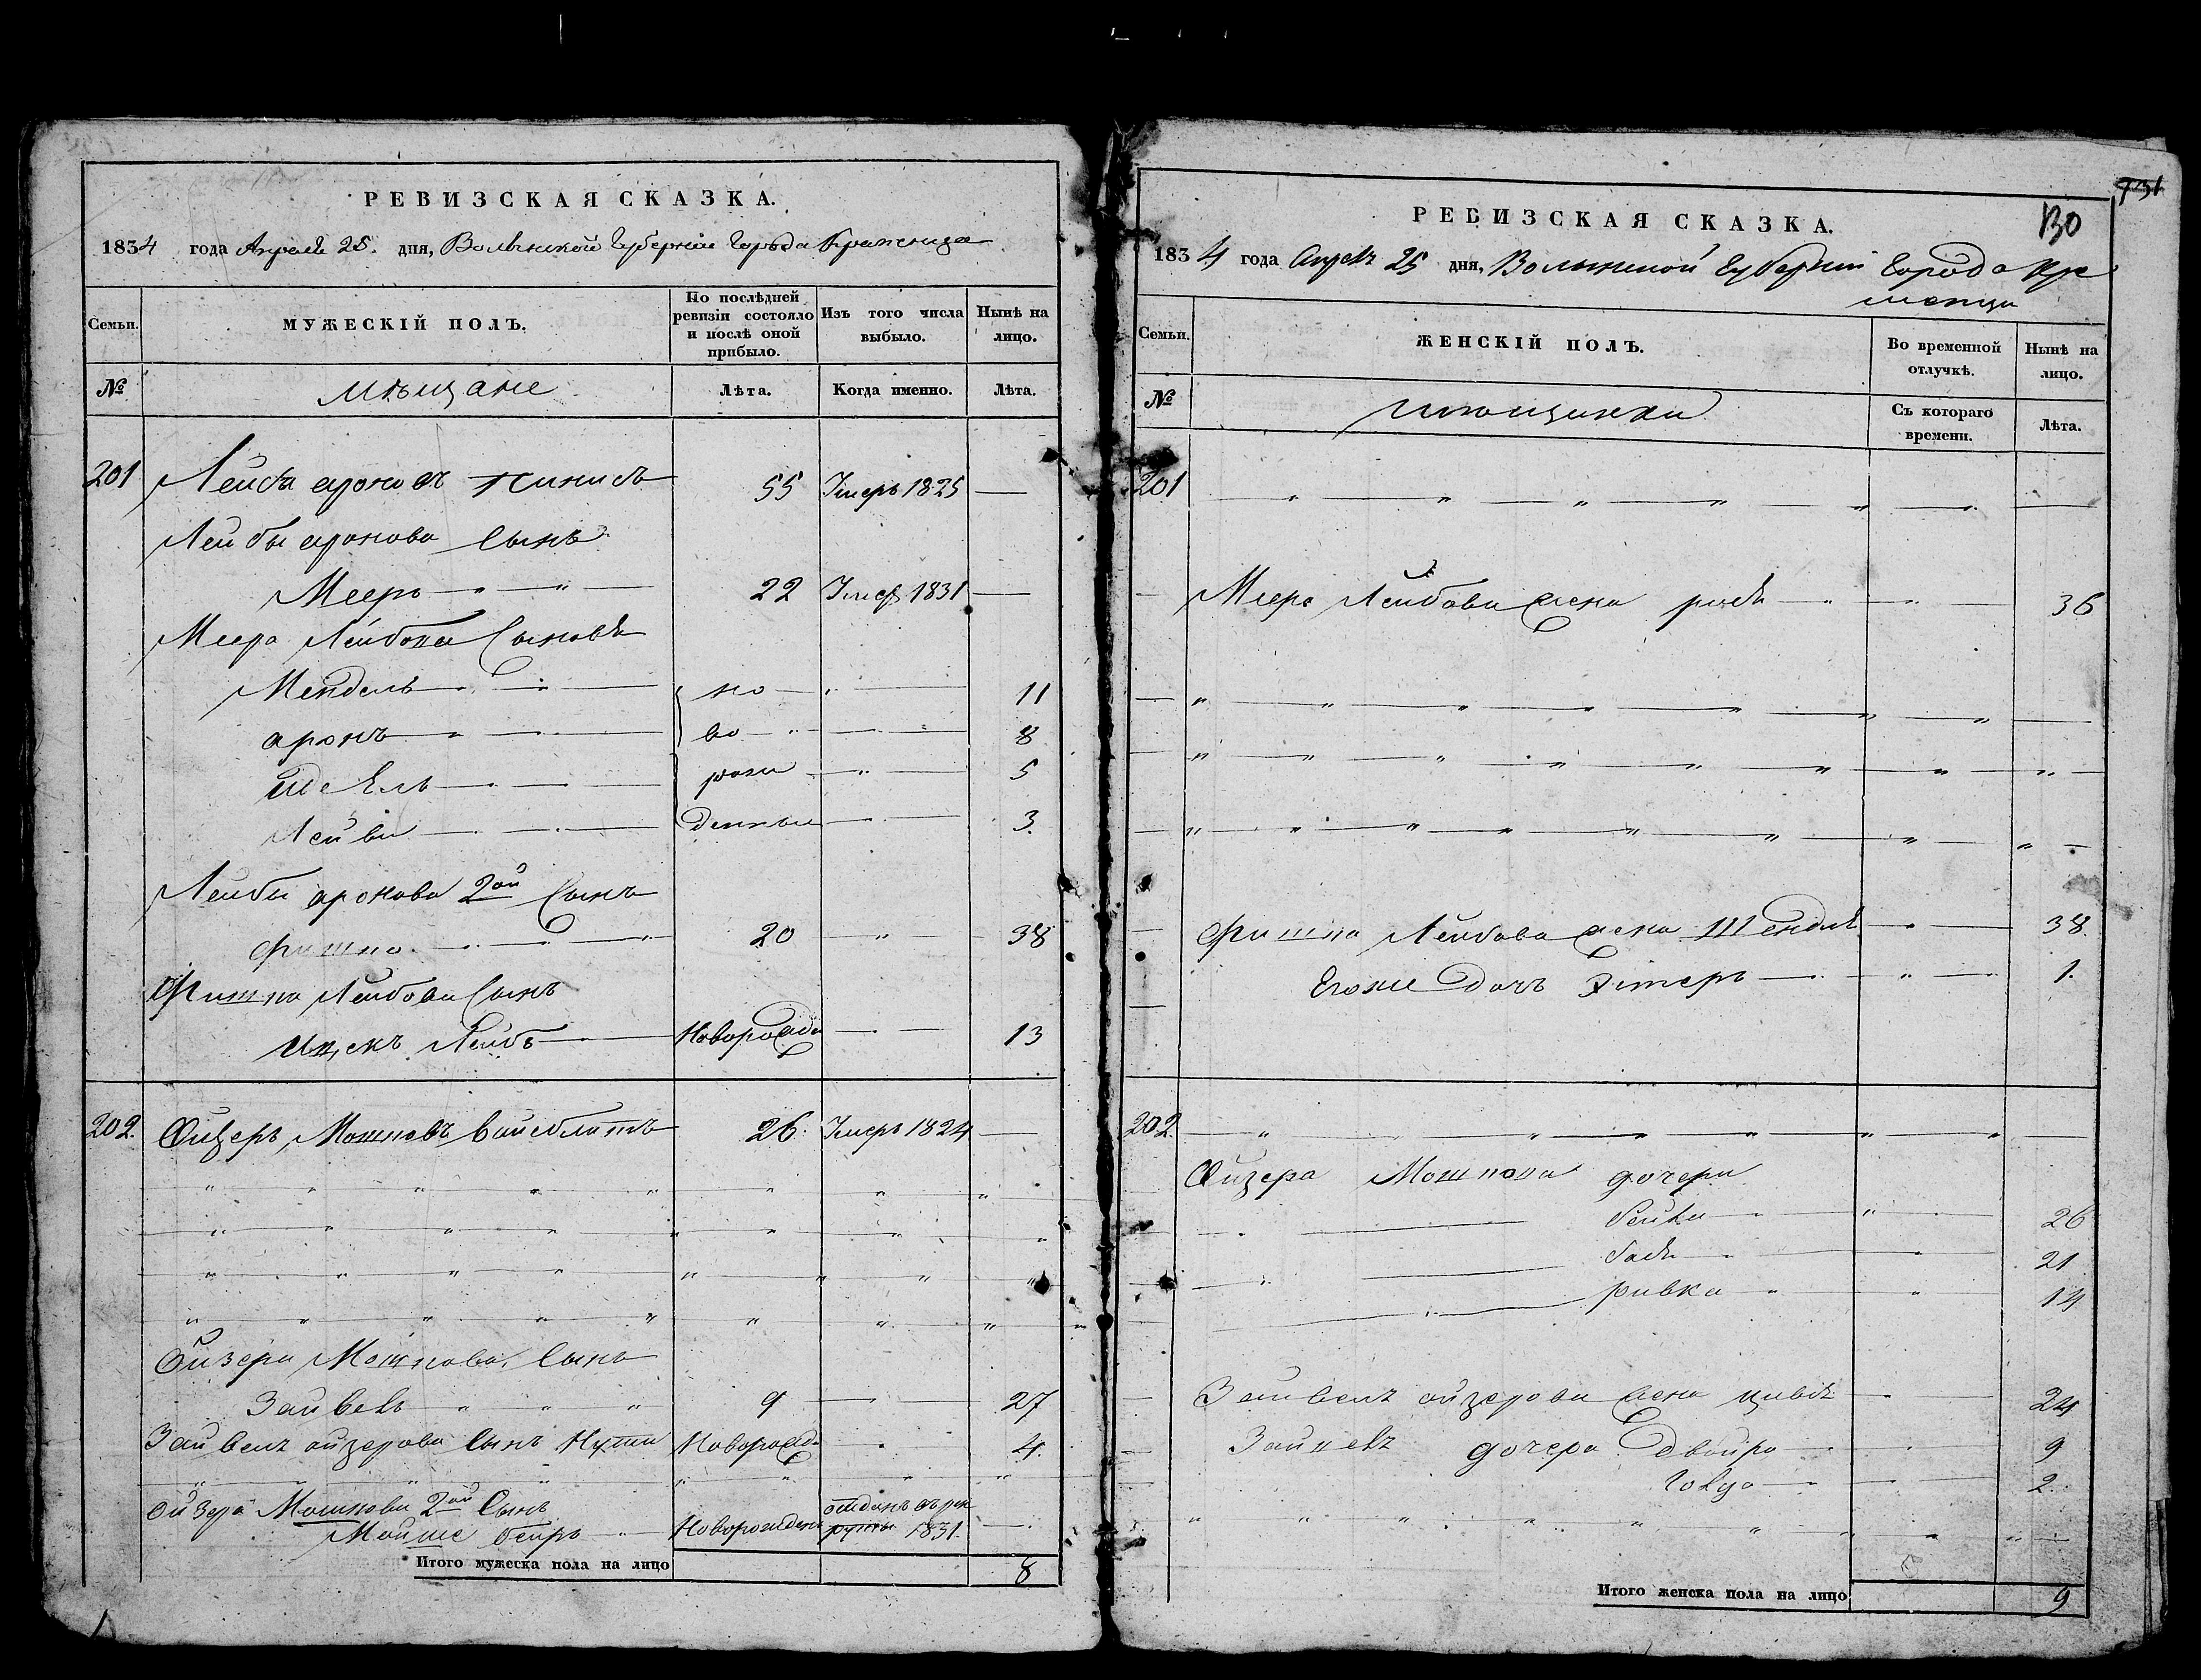 РЕВИЗСКАЯ СКАЗКА.
1834 года Апреля 25. дня, Волынской Губернии Города Кременца
Семьи. МУЖЕСКІЙ ПОЛЪ. По послѣдней ревизіи состояло и послѣ оной прибыло. Изъ того числа выбыло. Нынѣ на лицо.
№ мѣщане Лѣта. Когда именно. Лѣта.
201 Лейба ароновъ 55 Умеръ 1825 —
Лейбы аронова Сынъ
Мееръ 22 Умер 1831 —
Меера Лейбова Сыновья
Мендель но 11
аронъ во 8
рож 5
Лейви денные 3.
Лейбы аронова 2ой Сынъ
Фишко 20 38
Лейбова Сынъ
Ицекъ Лейбъ Новорожде 13
202. Ойзеръ Мошковъ вайсблатъ 26. Умеръ 1824 —
Ойзера Мошкова Сынъ
Зайвель 9 27
Зайвель ойзерова Сынъ Нута Новорожд. 4.
Ойзера Мошкова 2ой Сынъ
Мойше беиръ Новорожденъ отданъ въ рекруты 1831. —
Итого мужеска пола на лицо 8
731
130
РЕВИЗСКАЯ СКАЗКА.
1834 года Апреля 25 дня, Волынской Губернии Города Кре
менца
Семьи. ЖЕНСКІЙ ПОЛЪ. Во временной отлучкѣ. Нынѣ на лицо.
№ мѣщанки Съ котораго времени. Лѣта.
201
Меера Лейбова жена 36
Фишка Лейбова жена Шендля 38.
Егоже дочь Этеръ 1.
202
Ойзера Мошкова дочери
Бейла 26
Бася 21
ривка 14
Зайвель ойзерова жена цивья 24
Зайвель дочера Двойра 9
2.
Итого женска пола на лицо 9